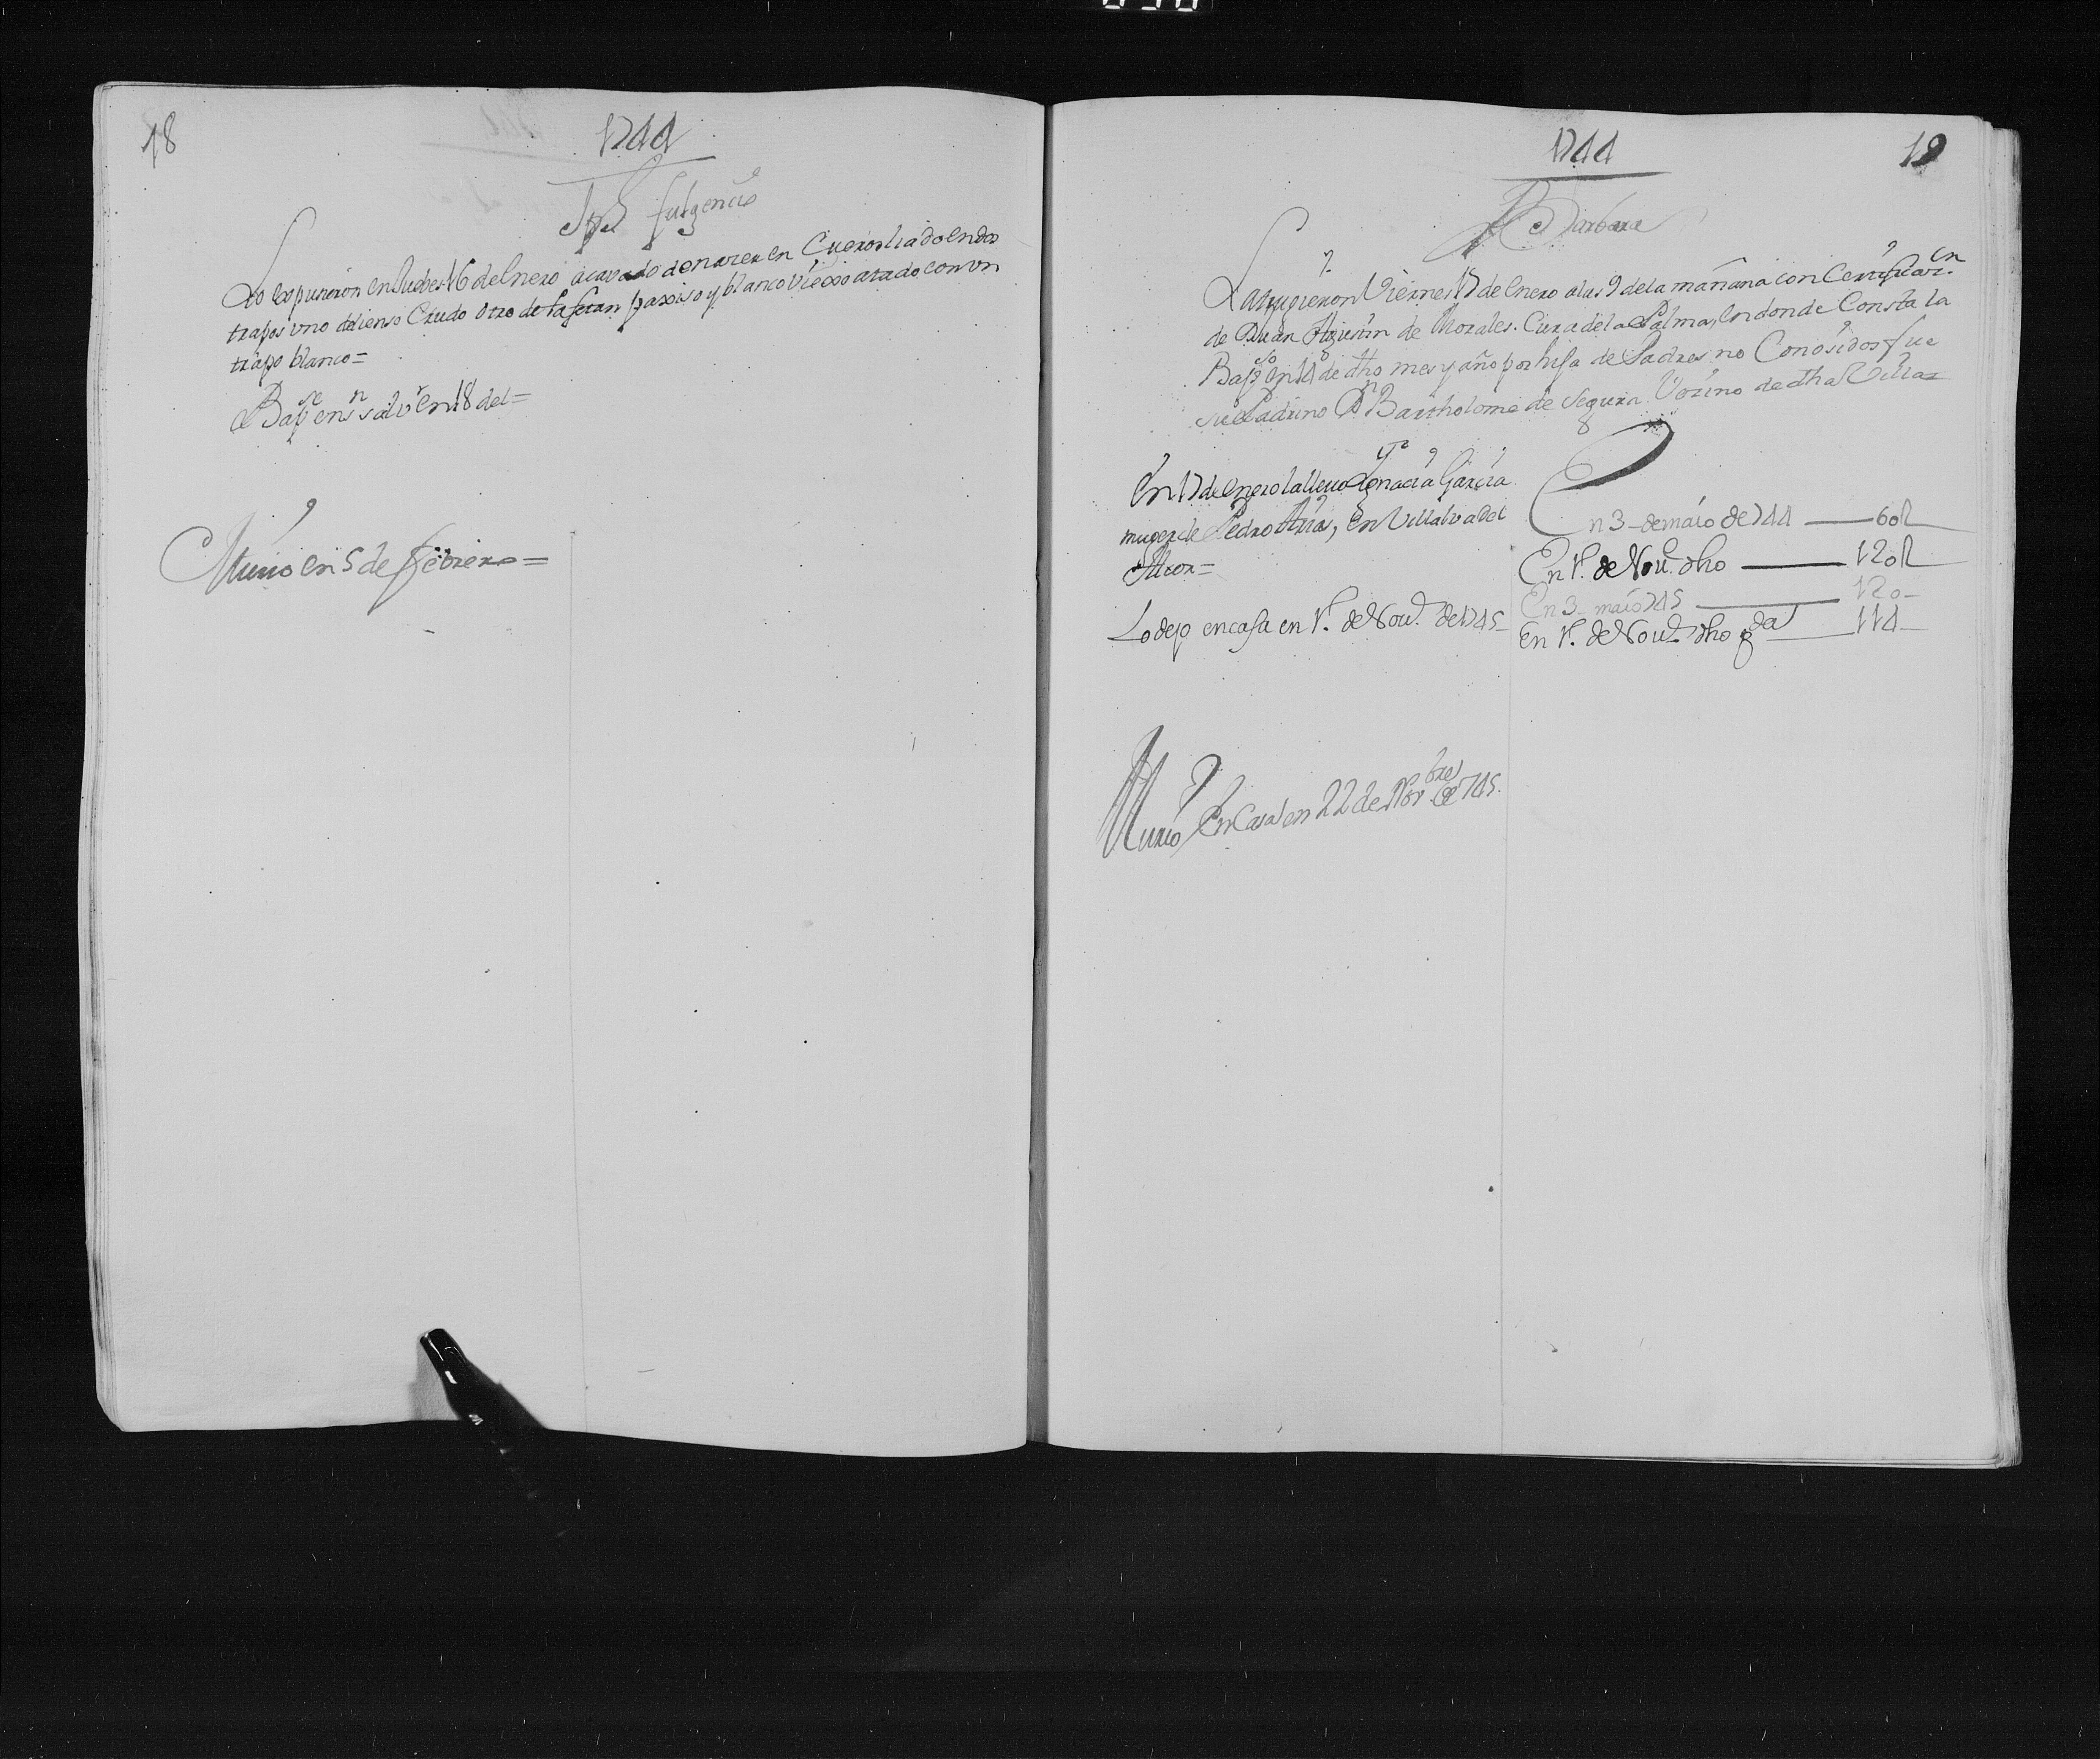 18
1744
Jph fulgencio
Lo espusieron en Juebes 16 de Enero acavado de nazer en Cueros liado en dos
trapos uno de lienso Crudo otro de tafetan paxiso y blanco Viexo atado con un
trapo blanco=
Bapse en Sn Salvr en 18 del=
Murio en 5 de febrero=
1744
19
Barbara
La trugeron Viernes 17 de Enero a las 9 de la mañana con Certificacn
de Juan Agustin de Morales Cura de la Palma, en donde Consta la
Bapso en 14 de dho mes y año por hija de Padres no Conosidos fue
su Padrino Dn Bartholome de Segura Vezino de dha Villa=
En 17 de Enero la llevo Ygnacia Garcia
muger de Pedro Arias, en Villalva del
Alcor=
En 3 de maio de 744 60 R
En 1º de Nov. dho 120 R
En 3 maio 745 120
En 1º de Nov. dho qda 114
Lo dejo en casa en 1º de Nov. de 1745
Murio En Casa en 22 de Novbre de 745.